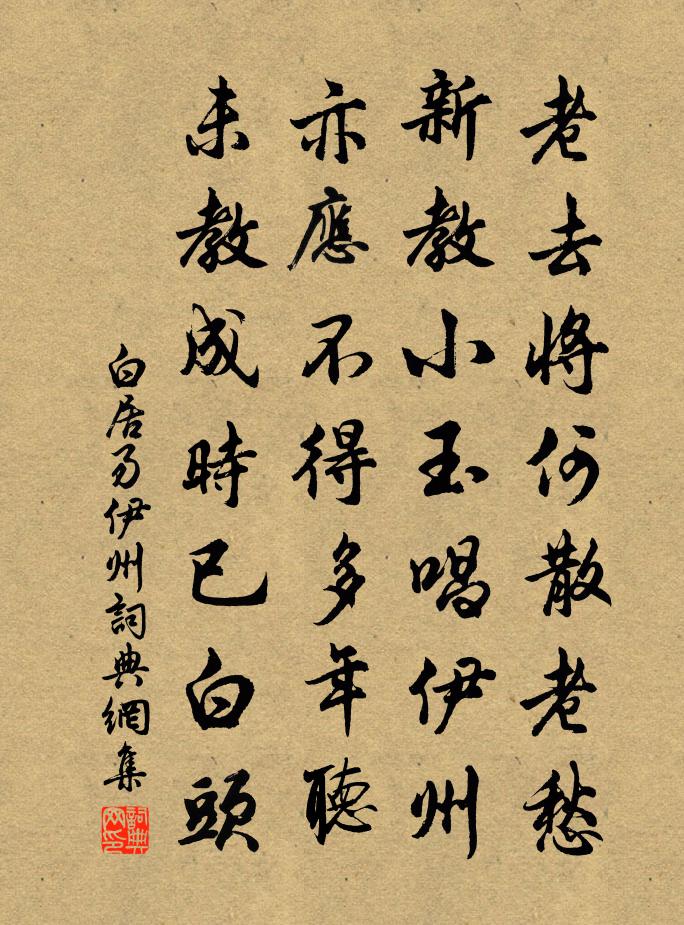 老去將何散老愁
新教小玉唱伊州
亦應不得多年聽
未教成時已白頭
白居易伊州詞典網集
詞典網印